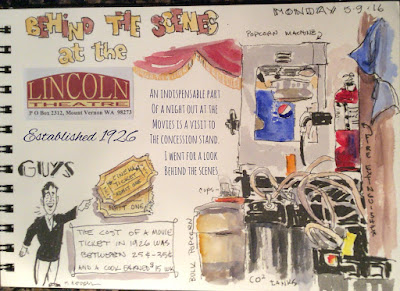 BEHIND THE SCENES
at the
MONDAY 5.9.16
LINCOLN
THEATRE
P O Box 2312, Mount Vernon WA 98273
Established 1926
AN INDISPENSABLE PART
OF A NIGHT OUT AT THE
MOVIES IS A VISIT TO
THE CONCESSION STAND.
I WENT FOR A LOOK
BEHIND THE SCENES
POPCORN MACHINE
FIRE EXTINGUISHER
GUYS
CINEMA
TICKET
ADMIT ONE
CUPS
BULK POPCORN
CO² TANKS
THE COST OF A MOVIE
TICKET IN 1926 WAS
BETWEEN 25¢-35¢
AND A COOK EARNED $15 WK